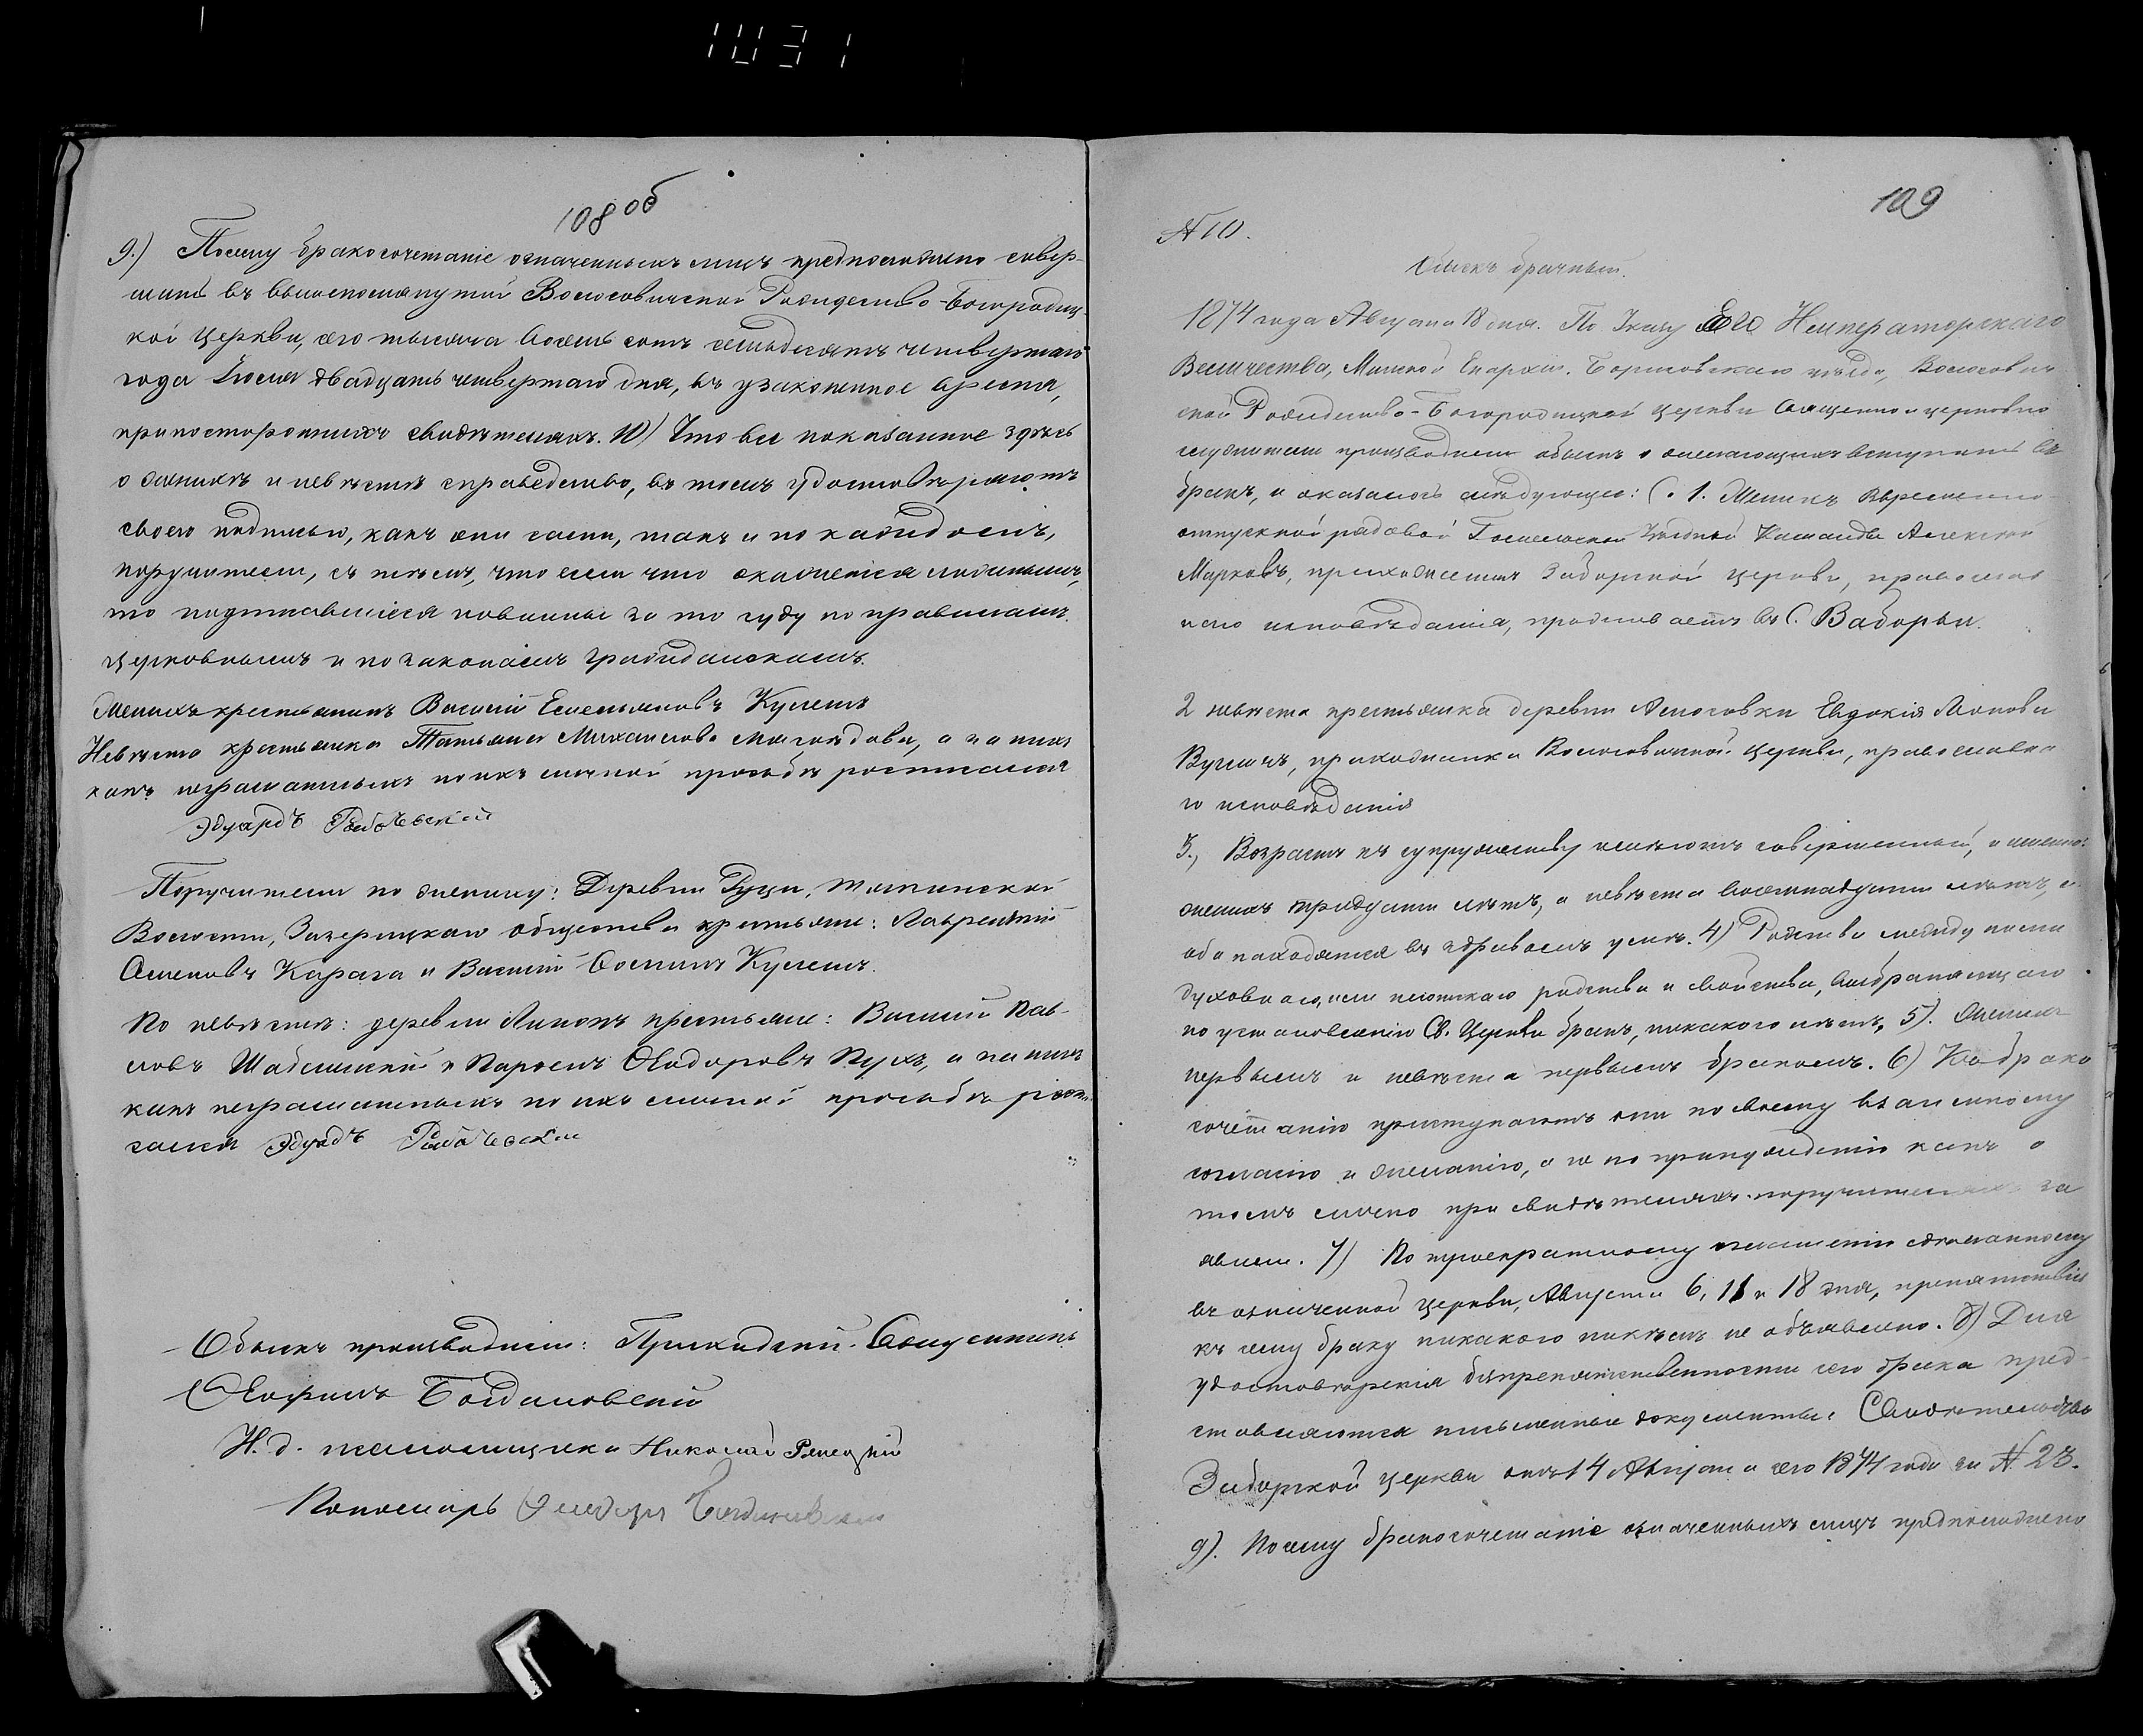 1031
108 об
9.) Посему бракосочетаніе означенныхъ лицъ предположено совер-
шить въ вышеупомянутой Волосовичской Рождество-Богородиц-
кой церкви, сего тысяча восемь сотъ семьдесятъ четвертаго
года Іюля двадцать четвертаго дня, въ узаконенное время,
при постороннихъ свидѣтеляхъ. 10) Что все показанное здѣсь
о женихѣ и невѣстѣ справедливо, въ томъ удостовѣряютъ
своею подписью, какъ они сами, такъ и по каждомъ,
поручители, съ тѣмъ, что если что окажется ложнымъ,
то подписавшіеся повинны за то суду по правиламъ
церковнымъ и по законамъ гражданскимъ.
Женихъ крестьянинъ Василій Емельяновъ Кулешъ
Невѣста крестьянка Татьяна Михаилова, а за нихъ
какъ неграматныхъ по ихъ личной прозьбѣ росписался
Эдуардъ
Поручители по жениху: Деревни
Волости, общества крестьяне: Лаврентій
Семеновъ Карага и Василій Осиповъ Кулешъ.
По невѣстѣ: деревни крестьяне: Василій Пав-
ловъ и Ѳеодоровъ, а за нихъ
какъ неграматныхъ по ихъ личной прозьбѣ роспи-
сался Эдуардъ
Обыскъ производили: Приходскій Священникъ
Богдановскій
И. д. псаломщика Николай
Пономарь Богдановскій
109
№ 10.
Обыскъ брачный.
1874 года Августа 18 дня. По Указу Его Императорскаго
Величества, Минской Епархіи, Борисовскаго уѣзда, Волосович-
ской Рождество-Богородицкой церкви Священно и церковно
служители производили обыскъ о желающихъ вступить въ
бракъ, и оказалось слѣдующее: 1. Женихъ временно-
отпускной рядовой Команды Алексѣй
Марковъ, прихожанинъ Заборской церкви, православ
наго исповѣданія, проживаетъ въ С. Заборьи.
2 невѣста крестьянка деревни Евдокія
прихожанка Волосовичской церкви, православна
го исповѣданія
3., Возрастъ къ супружеству имѣютъ совершенный, а именно:
женихъ тридцати лѣтъ, а невѣста восемнадцати лѣтъ, и
оба находятся въ здравомъ умѣ. 4) Родства между ними
духовнаго, или плотскаго родства и свойства, возбраняющаго
по установленію Св. Церкви бракъ, никакого нѣтъ. 5). Женихъ
первымъ и невѣста первымъ бракомъ. 6) Къ брако
сочетанію приступаютъ они по своему взаимному
согласію и желанію, а не по принужденію какъ о
томъ лично при свидѣтеляхъ-поручителяхъ за
явили. 7) По троекратному оглашенію сдѣланному
въ означенной церкви, Августа 6, 11 и 18 дня, препятствія
къ сему браку никакого никѣмъ не объявлено. 8) Для
удостовѣренія безпрепятственности сего брака пред-
ставляются письменные документы: Свидѣтельство
Заборской церкви отъ 14 Августа сего 1874 года за № 23.
9). Посему бракосочетаніе означенныхъ лицъ предположено